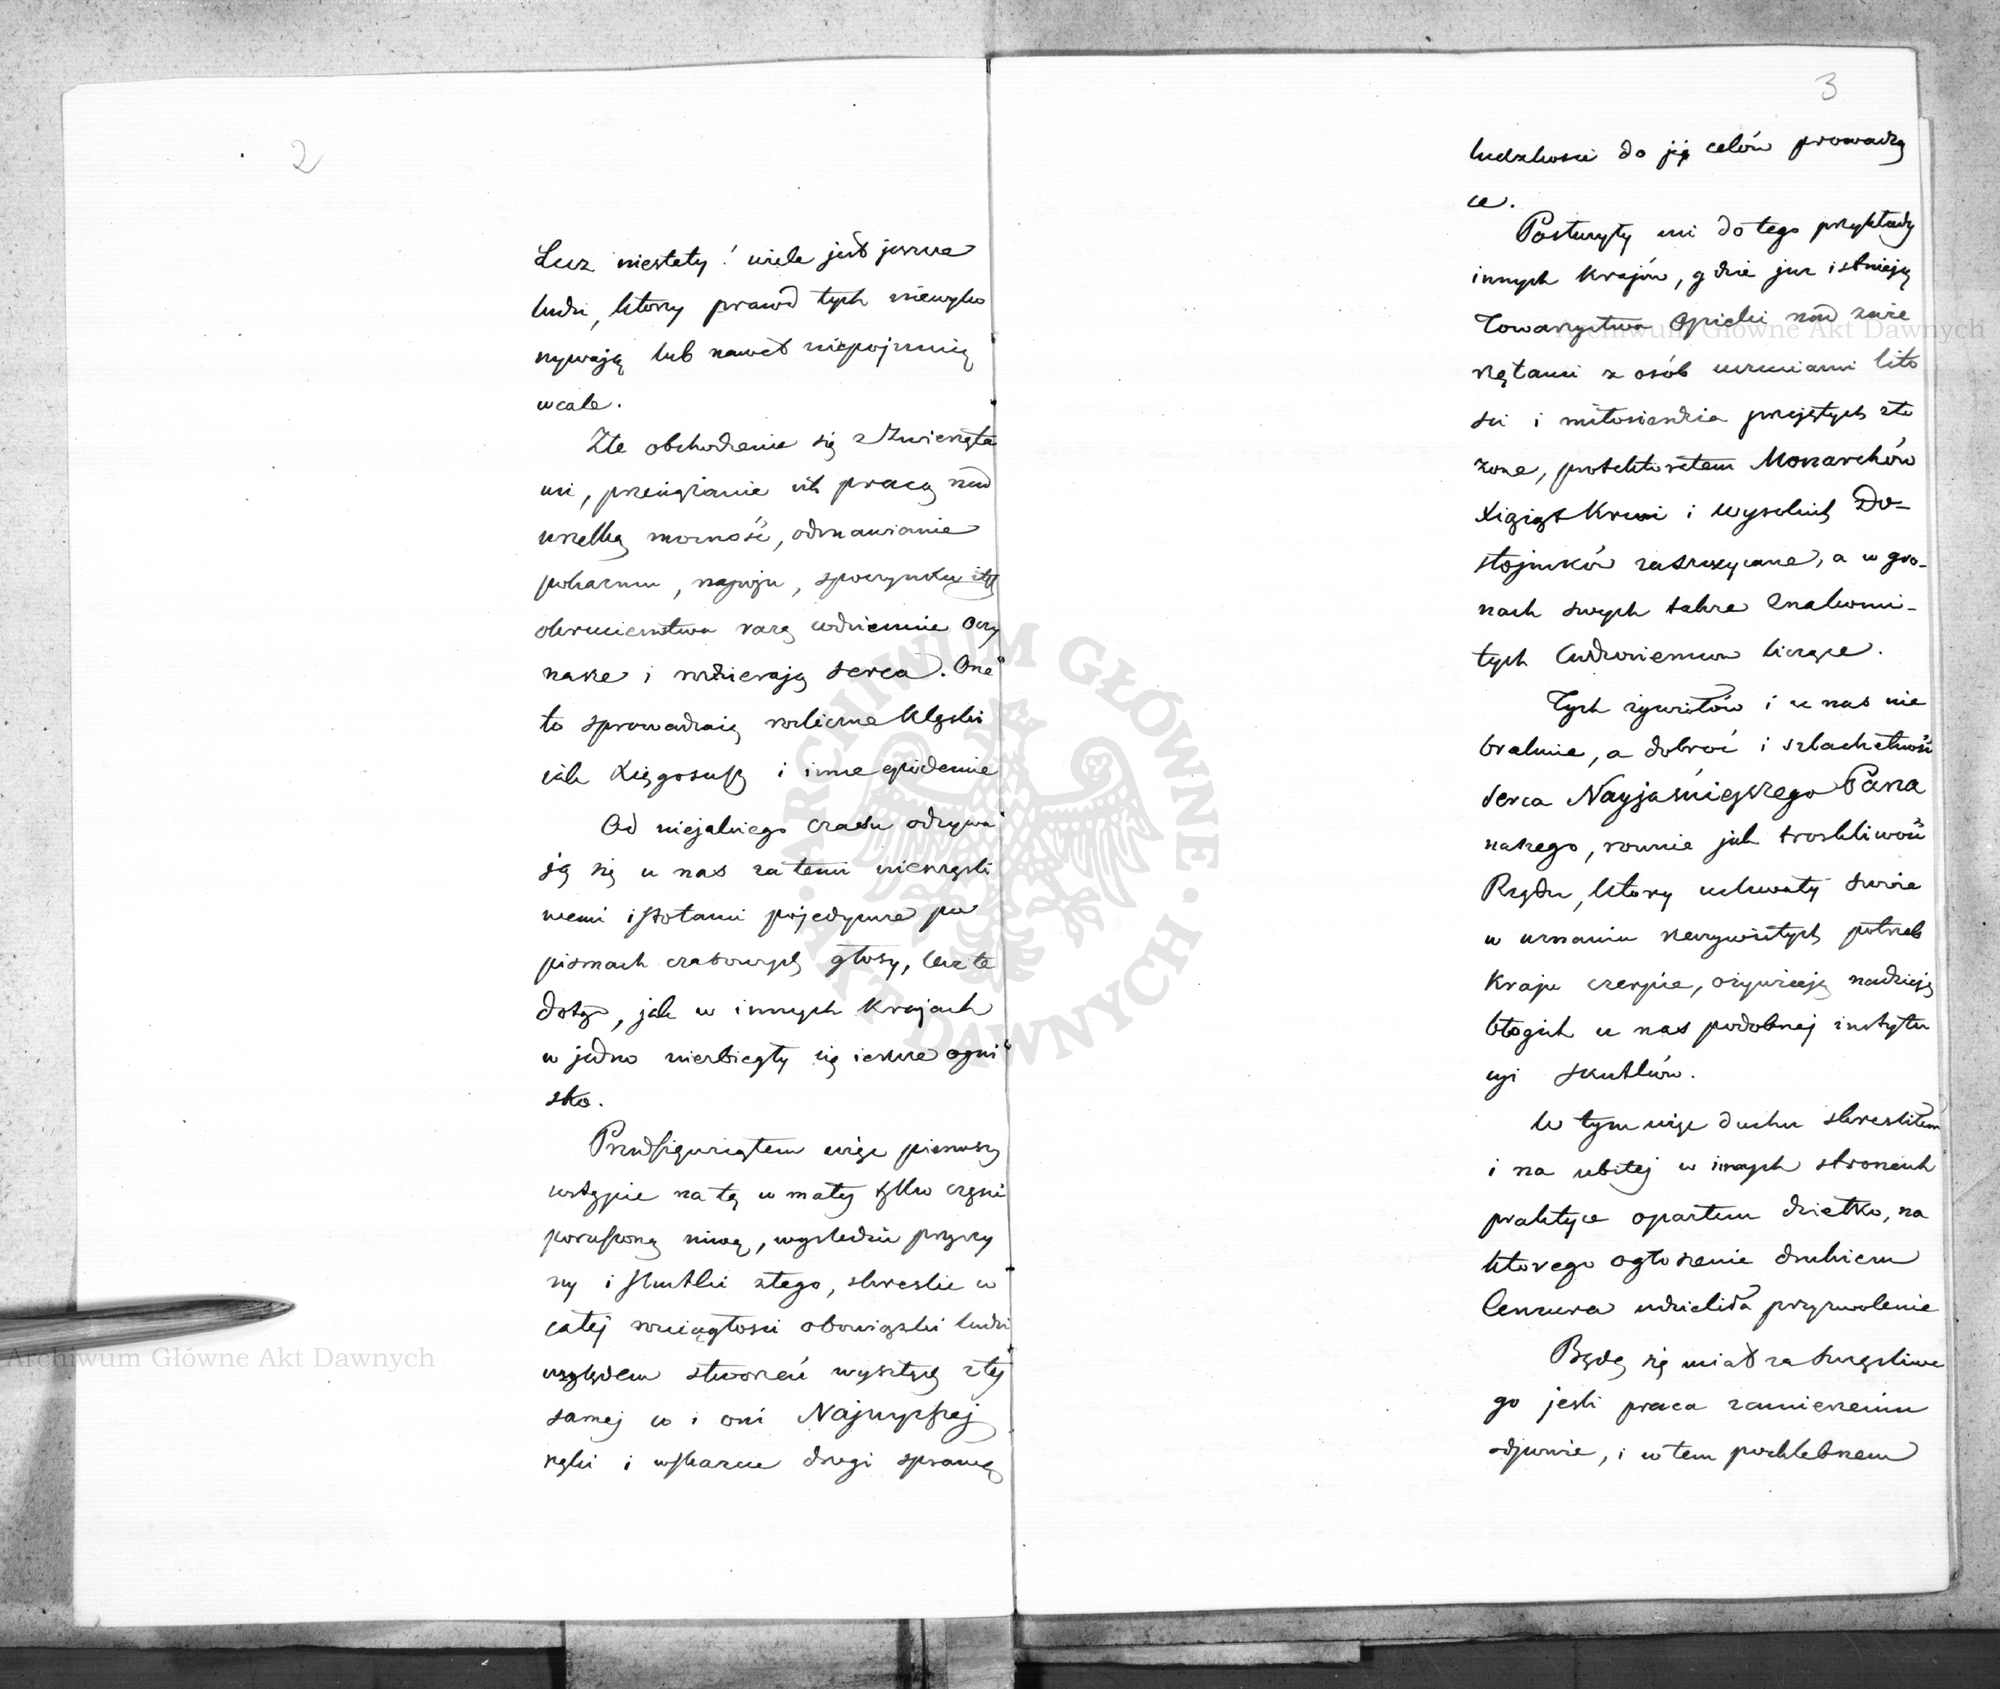 2
Lecz niestety! wiele jest jeszcze
ludzi, którzy prawd tych niewyko
nywają lub nawet niepojmują
wcale.
Złe obchodzenie się z Zwierzęta
mi, przeciążanie ich pracą nad
wszelką możność, odmawianie
pokarmu, napoju, spoczynku itp
okrucieństwa rażą codziennie oczy
nasze i rozdzierają serca. One
to sprowadzają rozliczne klęski
jak Xięgosusz i inne epidemie
Od niejakiego czasu odzywa
ją się u nas za temi nieszczęśli
wemi istotami pojedyncze po
pismach czasowych głosy, lecz te
dotąd, jak w innych Krajach
w jedno niezbiegły się jeszcze ogni
sko.
Przedsięwziąłem więc pierwszy
wstąpić na tę w małej tylko części
poruszoną niwę, wyśledzić przyczy
ny i skutki złego, skreślić w
całej rozciągłości obowiązki ludzi
względem stworzeń wyszłych z tej
samej co i oni Najwyższej
ręki i wskazać drogi sprawę
3
ludzkości do jej celów prowadzą
ce.
Posłużyły mi do tego przykłady
innych Krajów, gdzie już istnieją
Towarzystwa Opieki nad zwie
rzętami z osób uczuciami lito
ści i miłosierdzia przejętych zło
żone, protektoratem Monarchów
Xiążąt Krwi i wysokich Do-
stojników zaszczycane, a w gro-
nach swych także Znakomi-
tych Cudzoziemców liczące.
Tych żywiołów i u nas nie
braknie, a dobroć i szlachetność
serca Nayjaśniejszego Pana
naszego, rownie jak troskliwość
Rządu, który uchwały swoie
w uznaniu rzeczywistych potrzeb
Kraju czerpie, ożywiają nadzieję
błogich u nas podobnej instytu
cyi skutków.
W tym więc duchu skreśliłem
i na ubitej w innych stronach
praktyce opartem dziełko, na
którego ogłoszenie drukiem
Cenzura udzieliła przyzwolenie
Będę się miał za szczęśliwe
go jeśli praca zamierzeniu
odpowie, i w tem pochlebnem
Archiwum Główne Akt Dawnych
Archiwum Główne Akt Dawnych
ARCHIWUM GŁÓWNE
AKT DAWNYCH